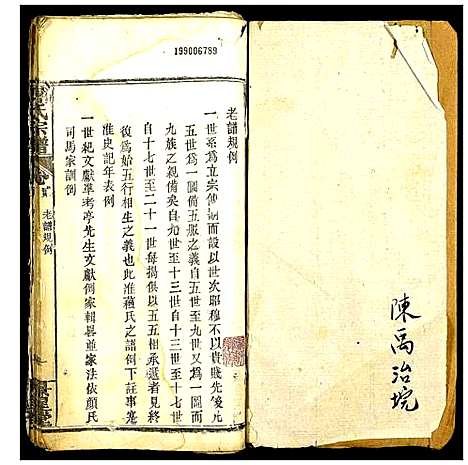 陳禹治垸
199006789
老譜規例
一世系為立宗傳嗣而設以世次昭穆不以貴賤先後凡
五世為一圖備五服之義自五世至九世又為一圖而
九族之親備矣自九世至十三世自十三世至十七世
自十七世至二十一世每揭俱以五五相承遞者見終
復為始五行相生之義也此准蘓氏之譜例下註事蹇
准史記年表例
一世紀文獻準考亭先生文獻例家輯畧並家法依顏氏
司馬家訓例
氏宗譜
老譜規例